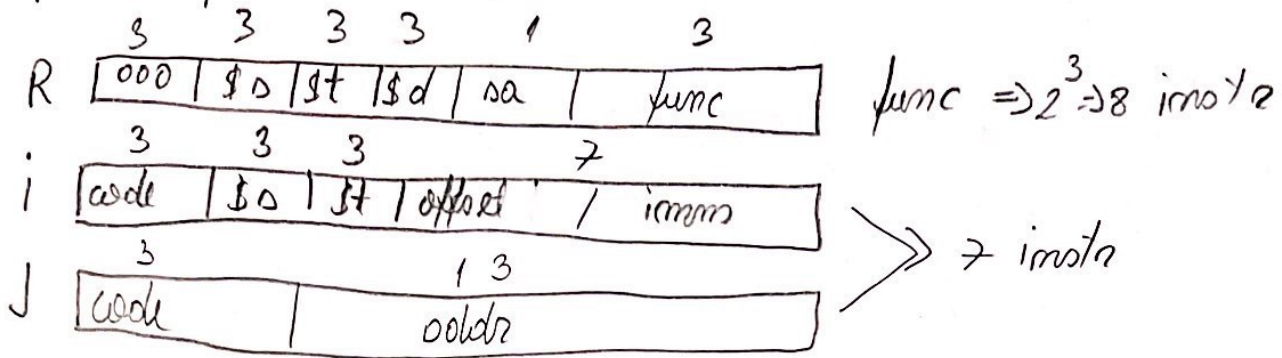 3 3 3 3 1 3
R 000 $s $t $d sa func func => 2^3 => 8 instr
3 3 3 7
i code $s $t offset / imm
7 instr
3 13
J code addr